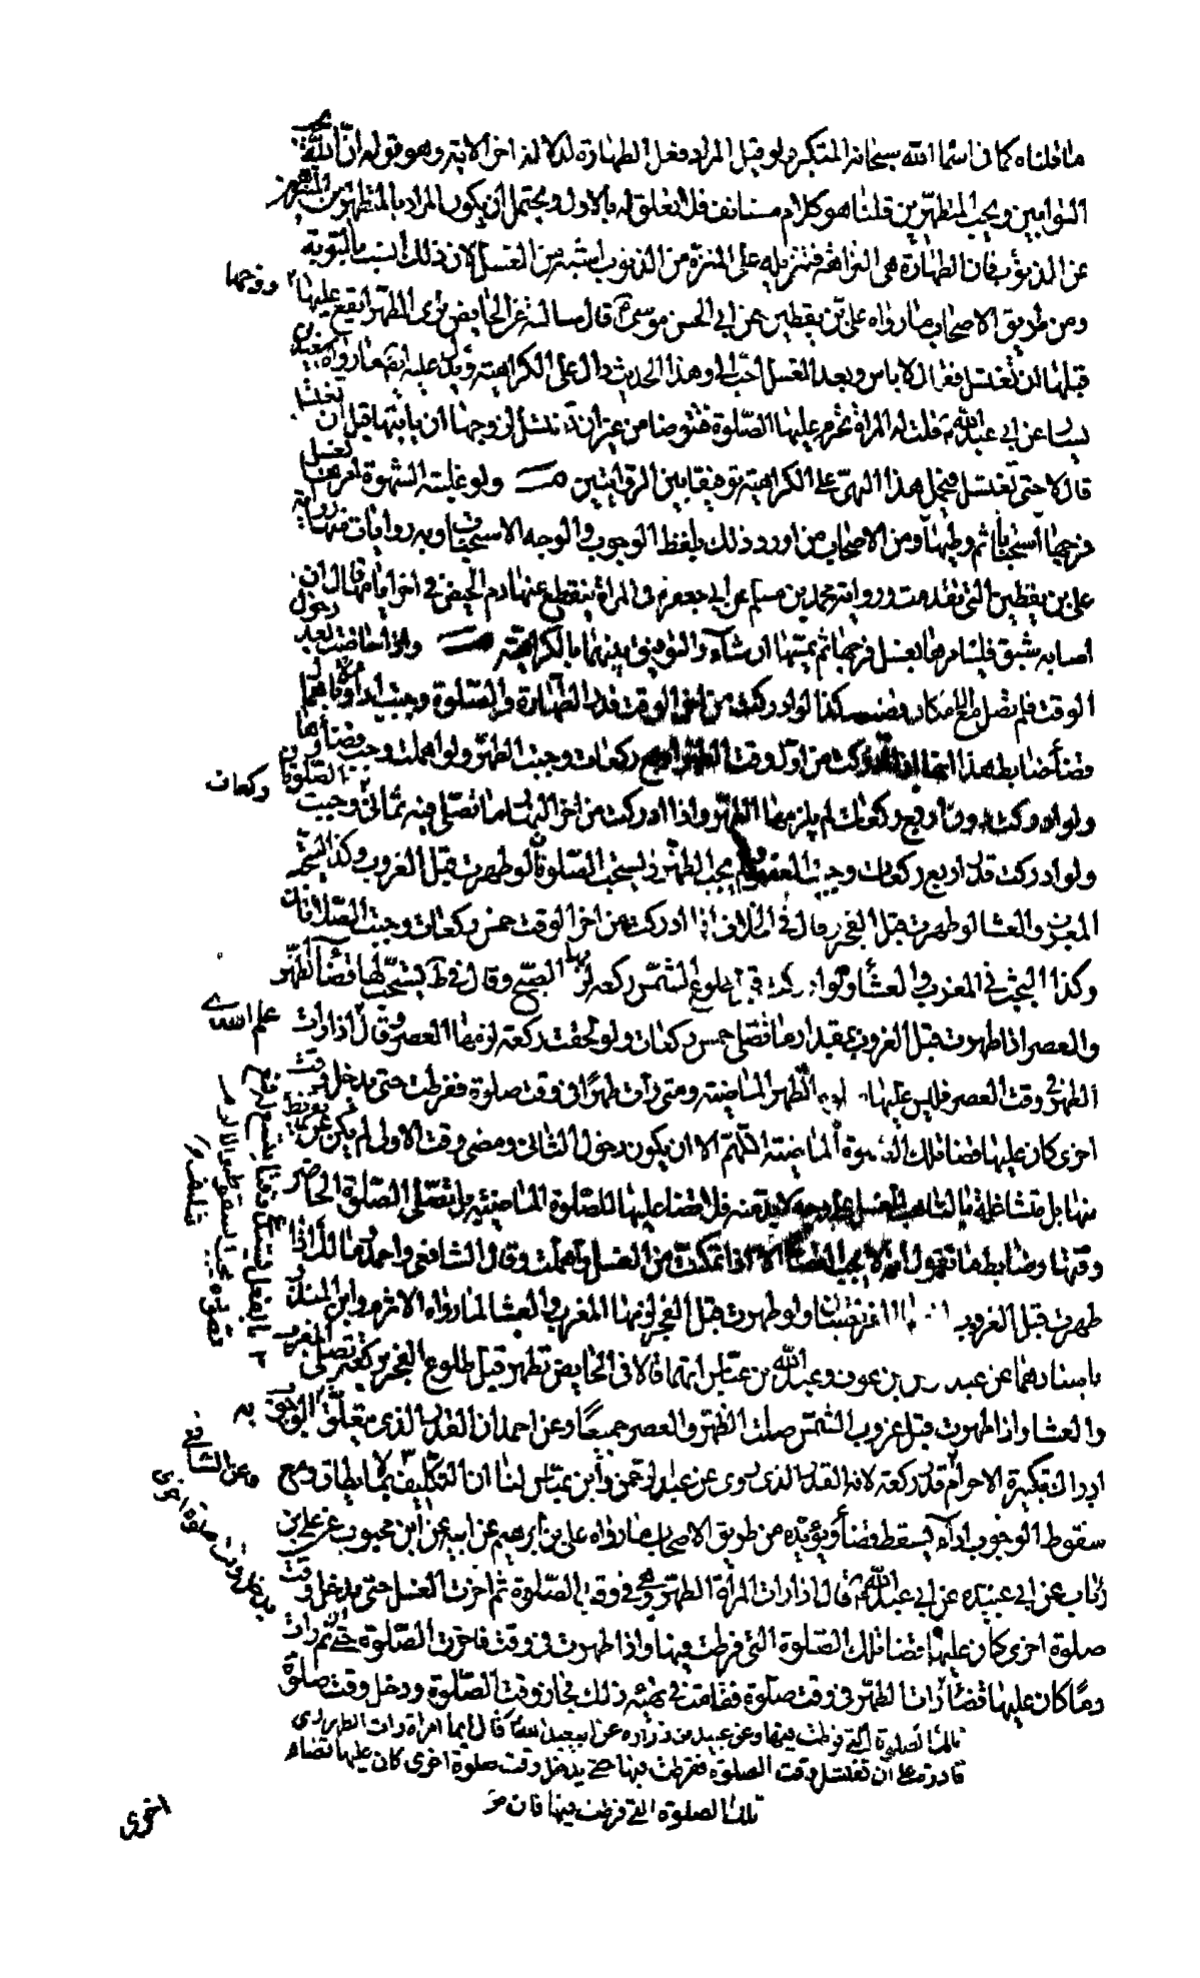 ما قلناه كما فى اسماء الله سبحانه المتكبر ولو قيل المراد فعل الطهارة لدلالة اخر الاية وهو قوله ان الله يحب
التوابين ويحب المتطهرين قلنا هو كلام مستانف فلا تعلق له بالاول ويحتمل ان يكون المراد بالمتطهرين المتنزهين
عن الذنوب فان الطهارة هى النزاهة فتنزيله على المنزه من الذنوب اشبه من الغسل لان ذلك انسب بالتوبة
ومن طريق الاصحاب ما رواه على بن يقطين عن ابى الحسن موسى ع قال سالته عن الحايض ترى الطهر ايقع عليها
زوجها
قبل ان تغتسل فقال لا باس وبعد الغسل احب الى وهذا الحديث دال على الكراهية ويدل عليه ايضا ما رواه سعيد بن
يسار عن ابى عبد الله ع قلت له المراة تحرم عليها الصلوة فتتوضا من غير ان تغتسل الزوجها ان ياتيها قبل ان تغتسل
قال لا حتى تغتسل فيحمل هذا النهى على الكراهية توفيقا بين الروايتين ولو غلبته الشهوة امرها بغسل
فرجها استحبابا ثم وطيها ومن الاصحاب من اورد ذلك بلفظ الوجوب والوجه الاستحباب وبه روايات منها رواية
على بن يقطين التى تقدمت ورواية محمد بن مسلم عن ابى جعفر ع فى المراة ينقطع عنها دم الحيض فى اخر ايامها قال ان
اصابه شبق فليامرها بغسل فرجها ثم يمسها ان شاء والتوفيق بينهما بالكراهية واذا حاضت بعد دخول
الوقت فلم تصل مع الامكان قضت وكذا لو ادركت من اخر الوقت قدر الطهارة والصلوة وجبت اداء ومع اهمالها
قضأ ضابط هذا انها اذا ادركت من اول وقت الظهر اربع ركعات وجبت الظهر ولو اهملت وجب قضاؤها
ولو ادركت دون اربع ركعات لم يلزمها الظهر واذا ادركت من اخر النهار ما تصلى فيه ثمانى وجبت الصلوتان
ركعات
ولو ادركت قدر اربع ركعات وجبت العصر ولم يجب الظهر ويستحب الصلوتان لو طهرت قبل الغروب وكذا يستحب
المغرب والعشا لو طهرت قبل الفجر وقال فى الخلاف اذا ادركت من اخر الوقت خمس ركعات وجبت الصلاتان
وكذا البحث فى المغرب والعشأ ولو ادركت قبل طلوع الشمس ركعة لزمها الصبح وقال فى ط يستحب لها قضأ الظهر
والعصر اذا طهرت قبل الغروب بمقدار ما تصلى خمس ركعات ولو لحقت ركعة لزمها العصر وقال اذا رات
علم الهدى
الطهر فى وقت العصر فليس عليها الظهر الماضية ومتى رات طهرا فى وقت صلوة ففرطت حتى يدخل وقت
اخرى كان عليها قضا تلك الصلوة الماضية اللهم الا ان يكون دخول الثانى ومضى وقت الاولى لم يكن عن تفريط
منها بل متشاغلة بالتاهب للغسل على وجه لا بد منه فلا قضا عليها للصلوة الماضية بل تصلى الصلوة الحاضر
وقتها وضابط ما نقول انه لا يجب القضا الا اذا تمكنت من الغسل واهملت وقال الشافعى واحمد ومالك اذا
طهرت قبل الغروب لزمها الفريضتان ولو طهرت قبل الفجر لزمها المغرب والعشا لما رواه الاثرم وابن المنذر
باسنادهما عن عبد الرحمن بن عوف وعبد الله بن عباس انهما قالا فى الحايض تطهر قبل طلوع الفجر بركعة تصلى المغرب
والعشا واذا طهرت قبل غروب الشمس صلت الظهر والعصر جميعا وعن احمد ان القدر الذى يتعلق به الوجوب
ادراك تكبيرة الاحرام وعن الشافعى قدر ركعة لانه القدر الذى روى عن عبد الرحمن وابن عباس لنا ان التكليف بما لا يطاق ومع
سقوط الوجوب اداء يسقط قضأ ويؤيده من طريق الاصحاب ما رواه على بن ابرهيم عن ابيه عن ابن محبوب عن على بن
رئاب عن ابى عبيده عن ابى عبد الله ع قال اذا رات المرأة الطهر وهى فى وقت الصلوة ثم اخرت الغسل حتى يدخل وقت
صلوة اخرى كان عليها قضا تلك الصلوة التى فرطت فيها واذا طهرت فى وقت فاخرت الصلوة حتى
يدخل وقت صلوة اخرى
ثم رات
دما كان عليها قضأ رات الطهر فى وقت صلوة فقامت فى تهيئة ذلك فجاز وقت الصلوة ودخل وقت صلوة
تلك الصلوة التى فرطت فيها وعن عبيد بن زراره عن ابى عبد الله ع قال ايما امراة رات الطهر وهى
قادرة على ان تغتسل وقت الصلوة ففرطت فيها حتى يدخل وقت صلوة اخرى كان عليها قضاء
تلك الصلوة التى فرطت فيها فان
اخرى